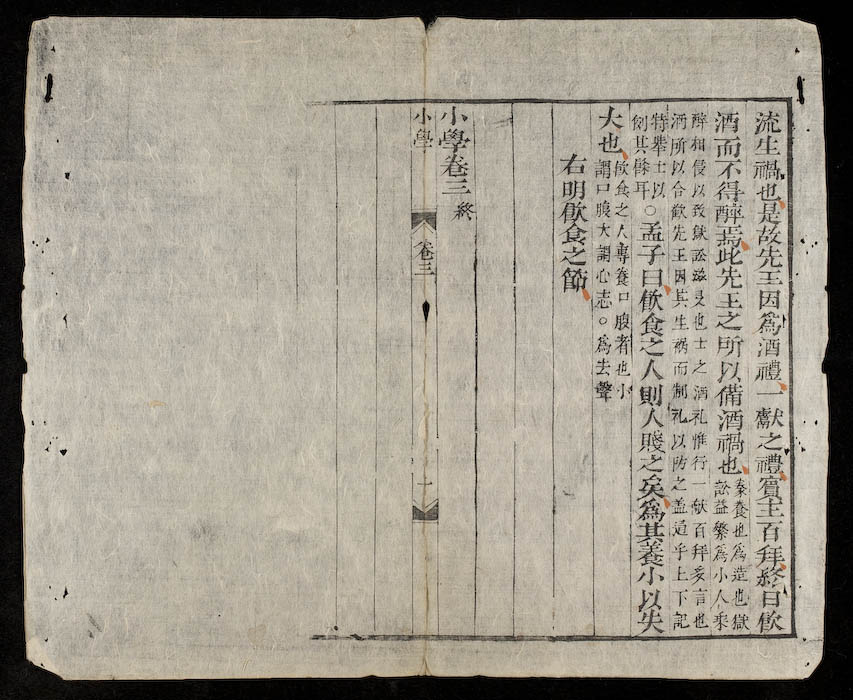 流生禍也是故先王因爲酒禮一獻之禮賓主百拜終日飮
酒而不得醉焉此先王之所以備酒禍也
豢養也爲造也獄
訟益繁爲小人乘
醉相侵以致獄訟滋多也士之酒礼惟行一献百拜多言也
酒所以合歡先王因其生祸而制礼以防之盖通乎上下記
特舉士以
例其餘耳
○孟子曰飮食之人則人賤之矣爲其養小以失
大也
飮食之人專養口腹者也小
謂口腹大謂心志○爲去聲
右明飮食之節
小學卷三終
小學 卷三 一